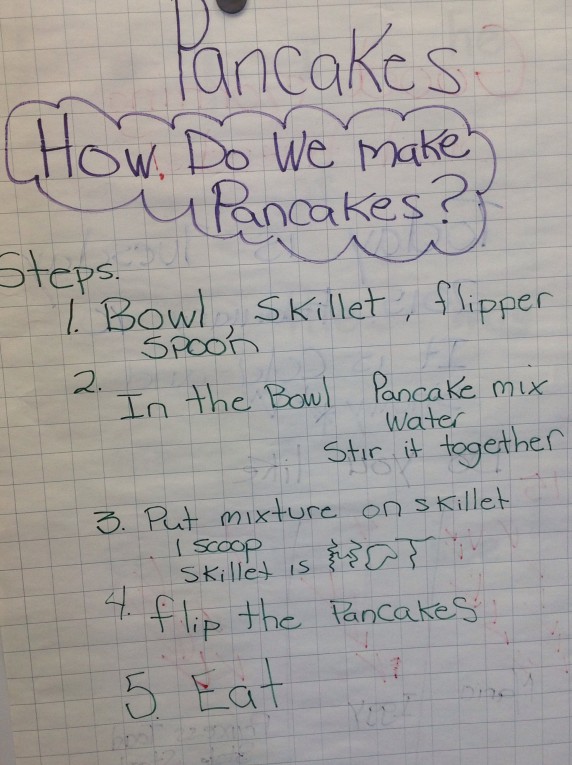 Pancakes
How Do We make
Pancakes?
Steps.
1. Bowl, Skillet, flipper
Spoon
2. In the Bowl Pancake mix
Water
Stir it together
3. Put mixture on skillet
1 scoop
Skillet is HOT
4. flip the Pancakes
5. Eat